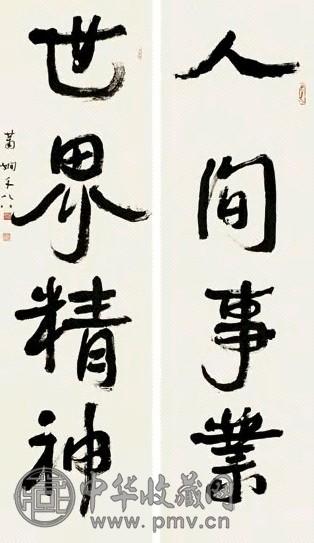 人间事業
世界精神
蕭嫻年八八
中华收藏网
www.pmv.cn